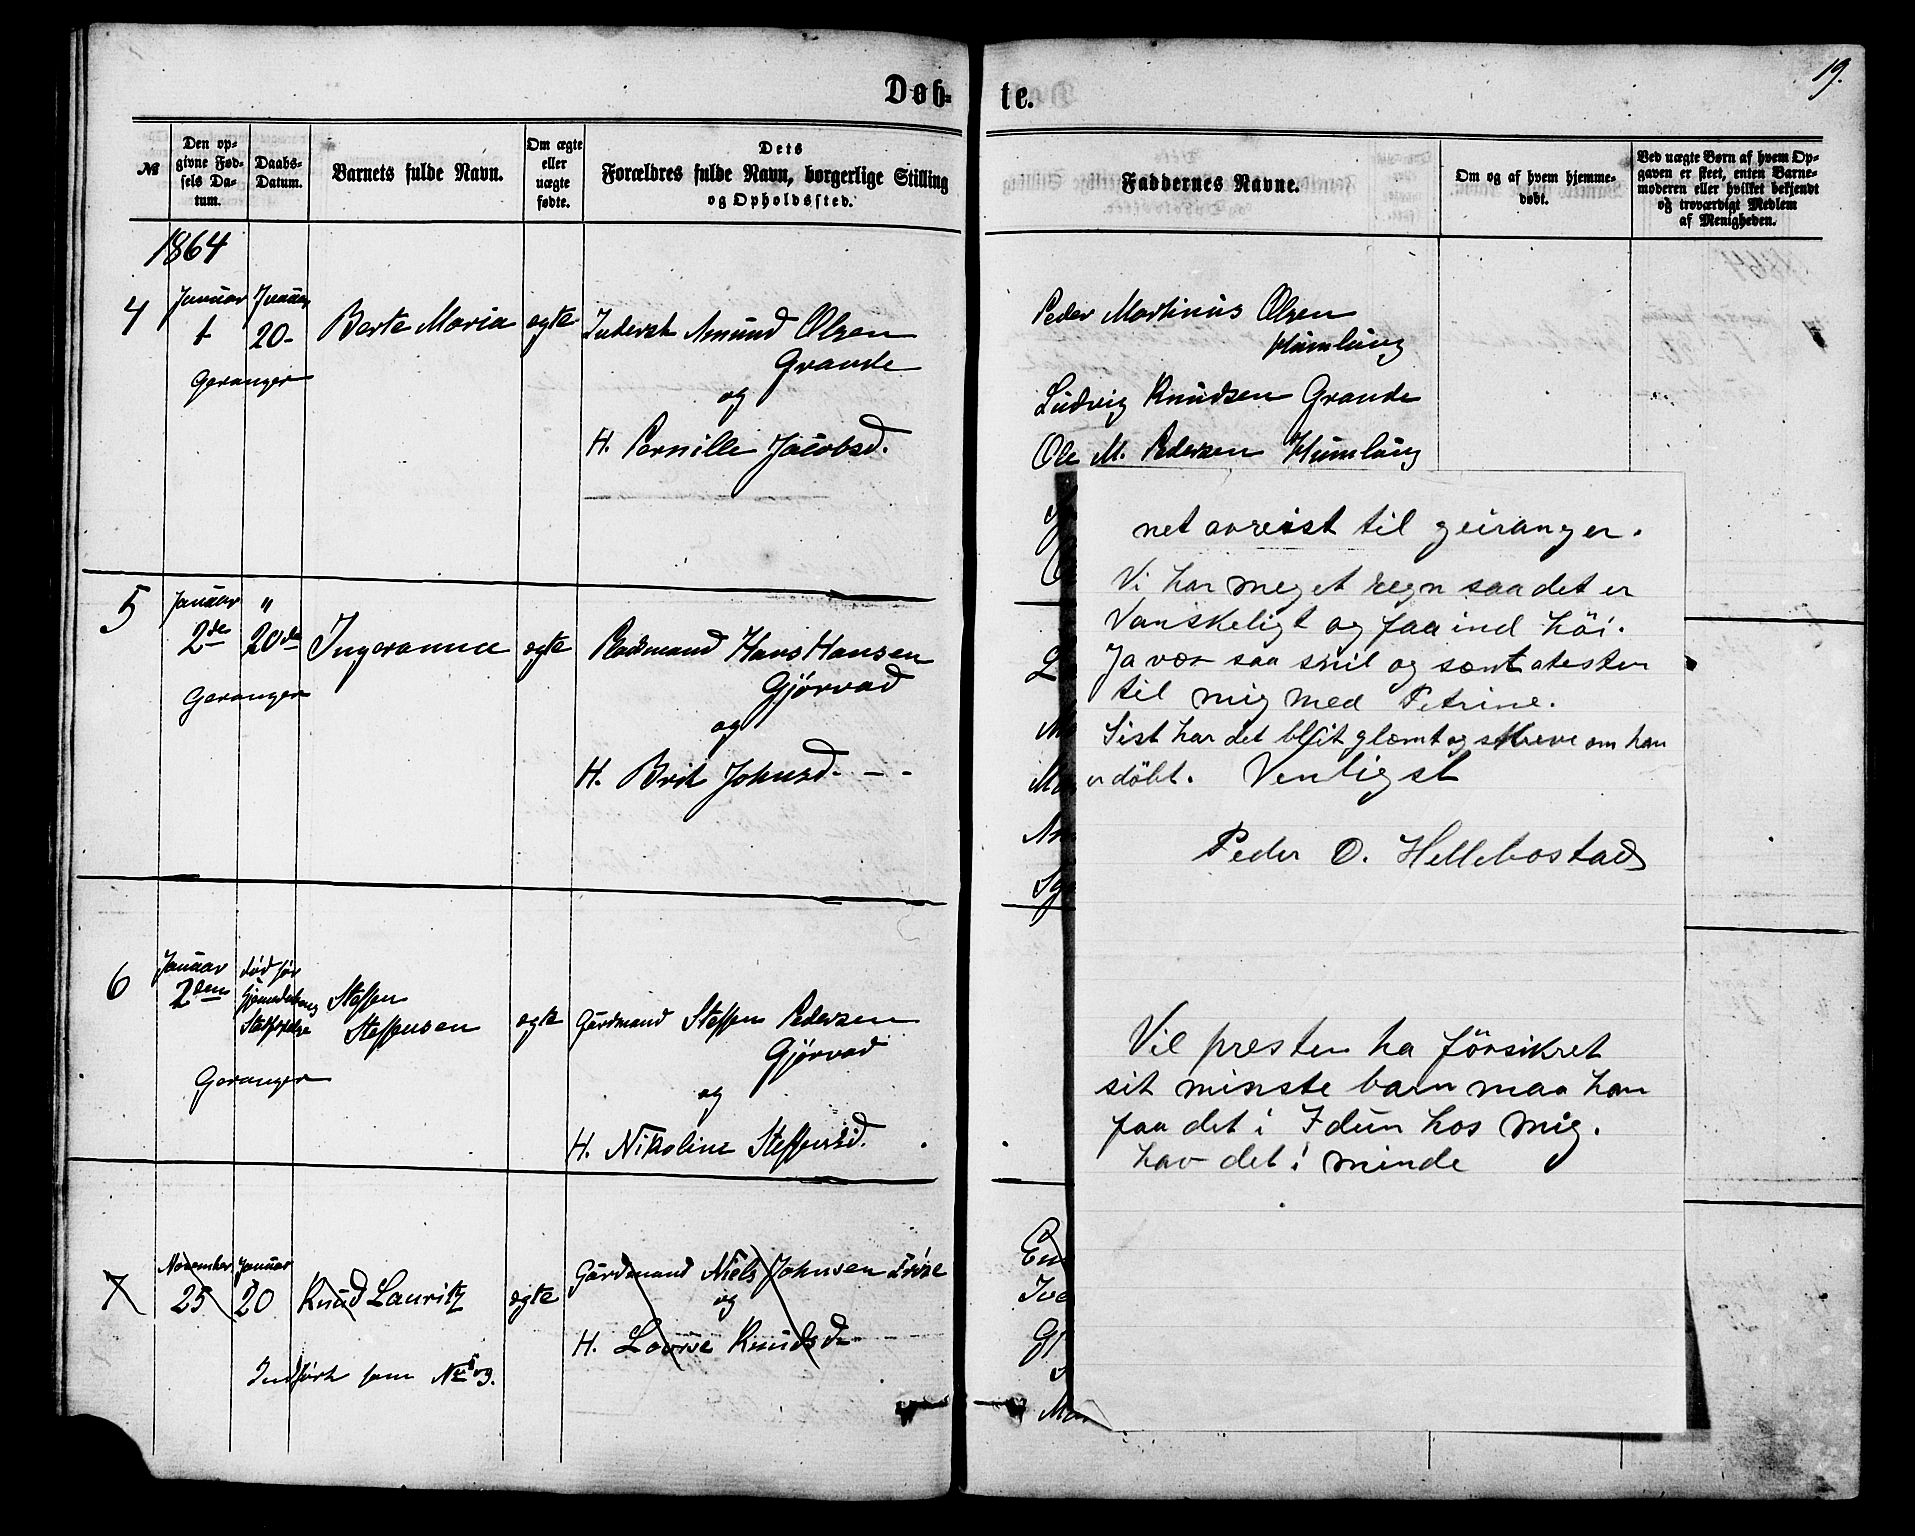 Døb-
te.
19.
№
Den op-
givne Fød-
sels Da-
tum.
Daabs-
Datum.
Barnets fulde Navn.
Om ægte
eller
uægte
fødte.
Dets
Forældres fulde Navn, borgerlige Stilling
og Opholdssted.
Faddernes Navne.
Om og af hvem hjemme-
døbt.
Ved uægte Børn af hvem Op-
gaven er skeet, enten Barne-
moderen eller hvilket bekjendt
og troværdigt Medlem
af Menigheden.
1864
4
Januar
1
Geranger
Januar
20-
Berte Maria
egte
Inderst Amund Olsen
Grande
og
H. Pernille Jacobsd.
Peder Martinus Olsen
Humlung
Ludvig Knudsen Grande
Ole M. Pedersen Humlung
5
Januar
2de
Geranger
"
20de
Ingeranna
egte
Pladsmand Hans Hansen
Gjørvad
og
H. Brit Johnsd.
6
Januar
2den
Geranger
død før
Hjemmedaabens
Steffen
Steffensen
egte
Gardmand Steffen Pedersen
Gjørvad
og
H. Nikoline Steffensd.
7
November
25
Januar
20
Knud Lauritz
egte
Gardmand Niels Johnsen
og
H. Lovise Knudsd
Indført som No
net avreist til geiranger.
Vi har meget regn saa det er
Vanskeligt og faa ind höi.
Ja vær saa snil og sænt atesten
til mig med Petrine.
Sist har det blit glæmt og skreve om han
er döbt. Venligst
Peder O. Hellebostad
Vil presten ha försikret
sit minste barn maa han
faa det i Idun hos mig.
hav det i minde